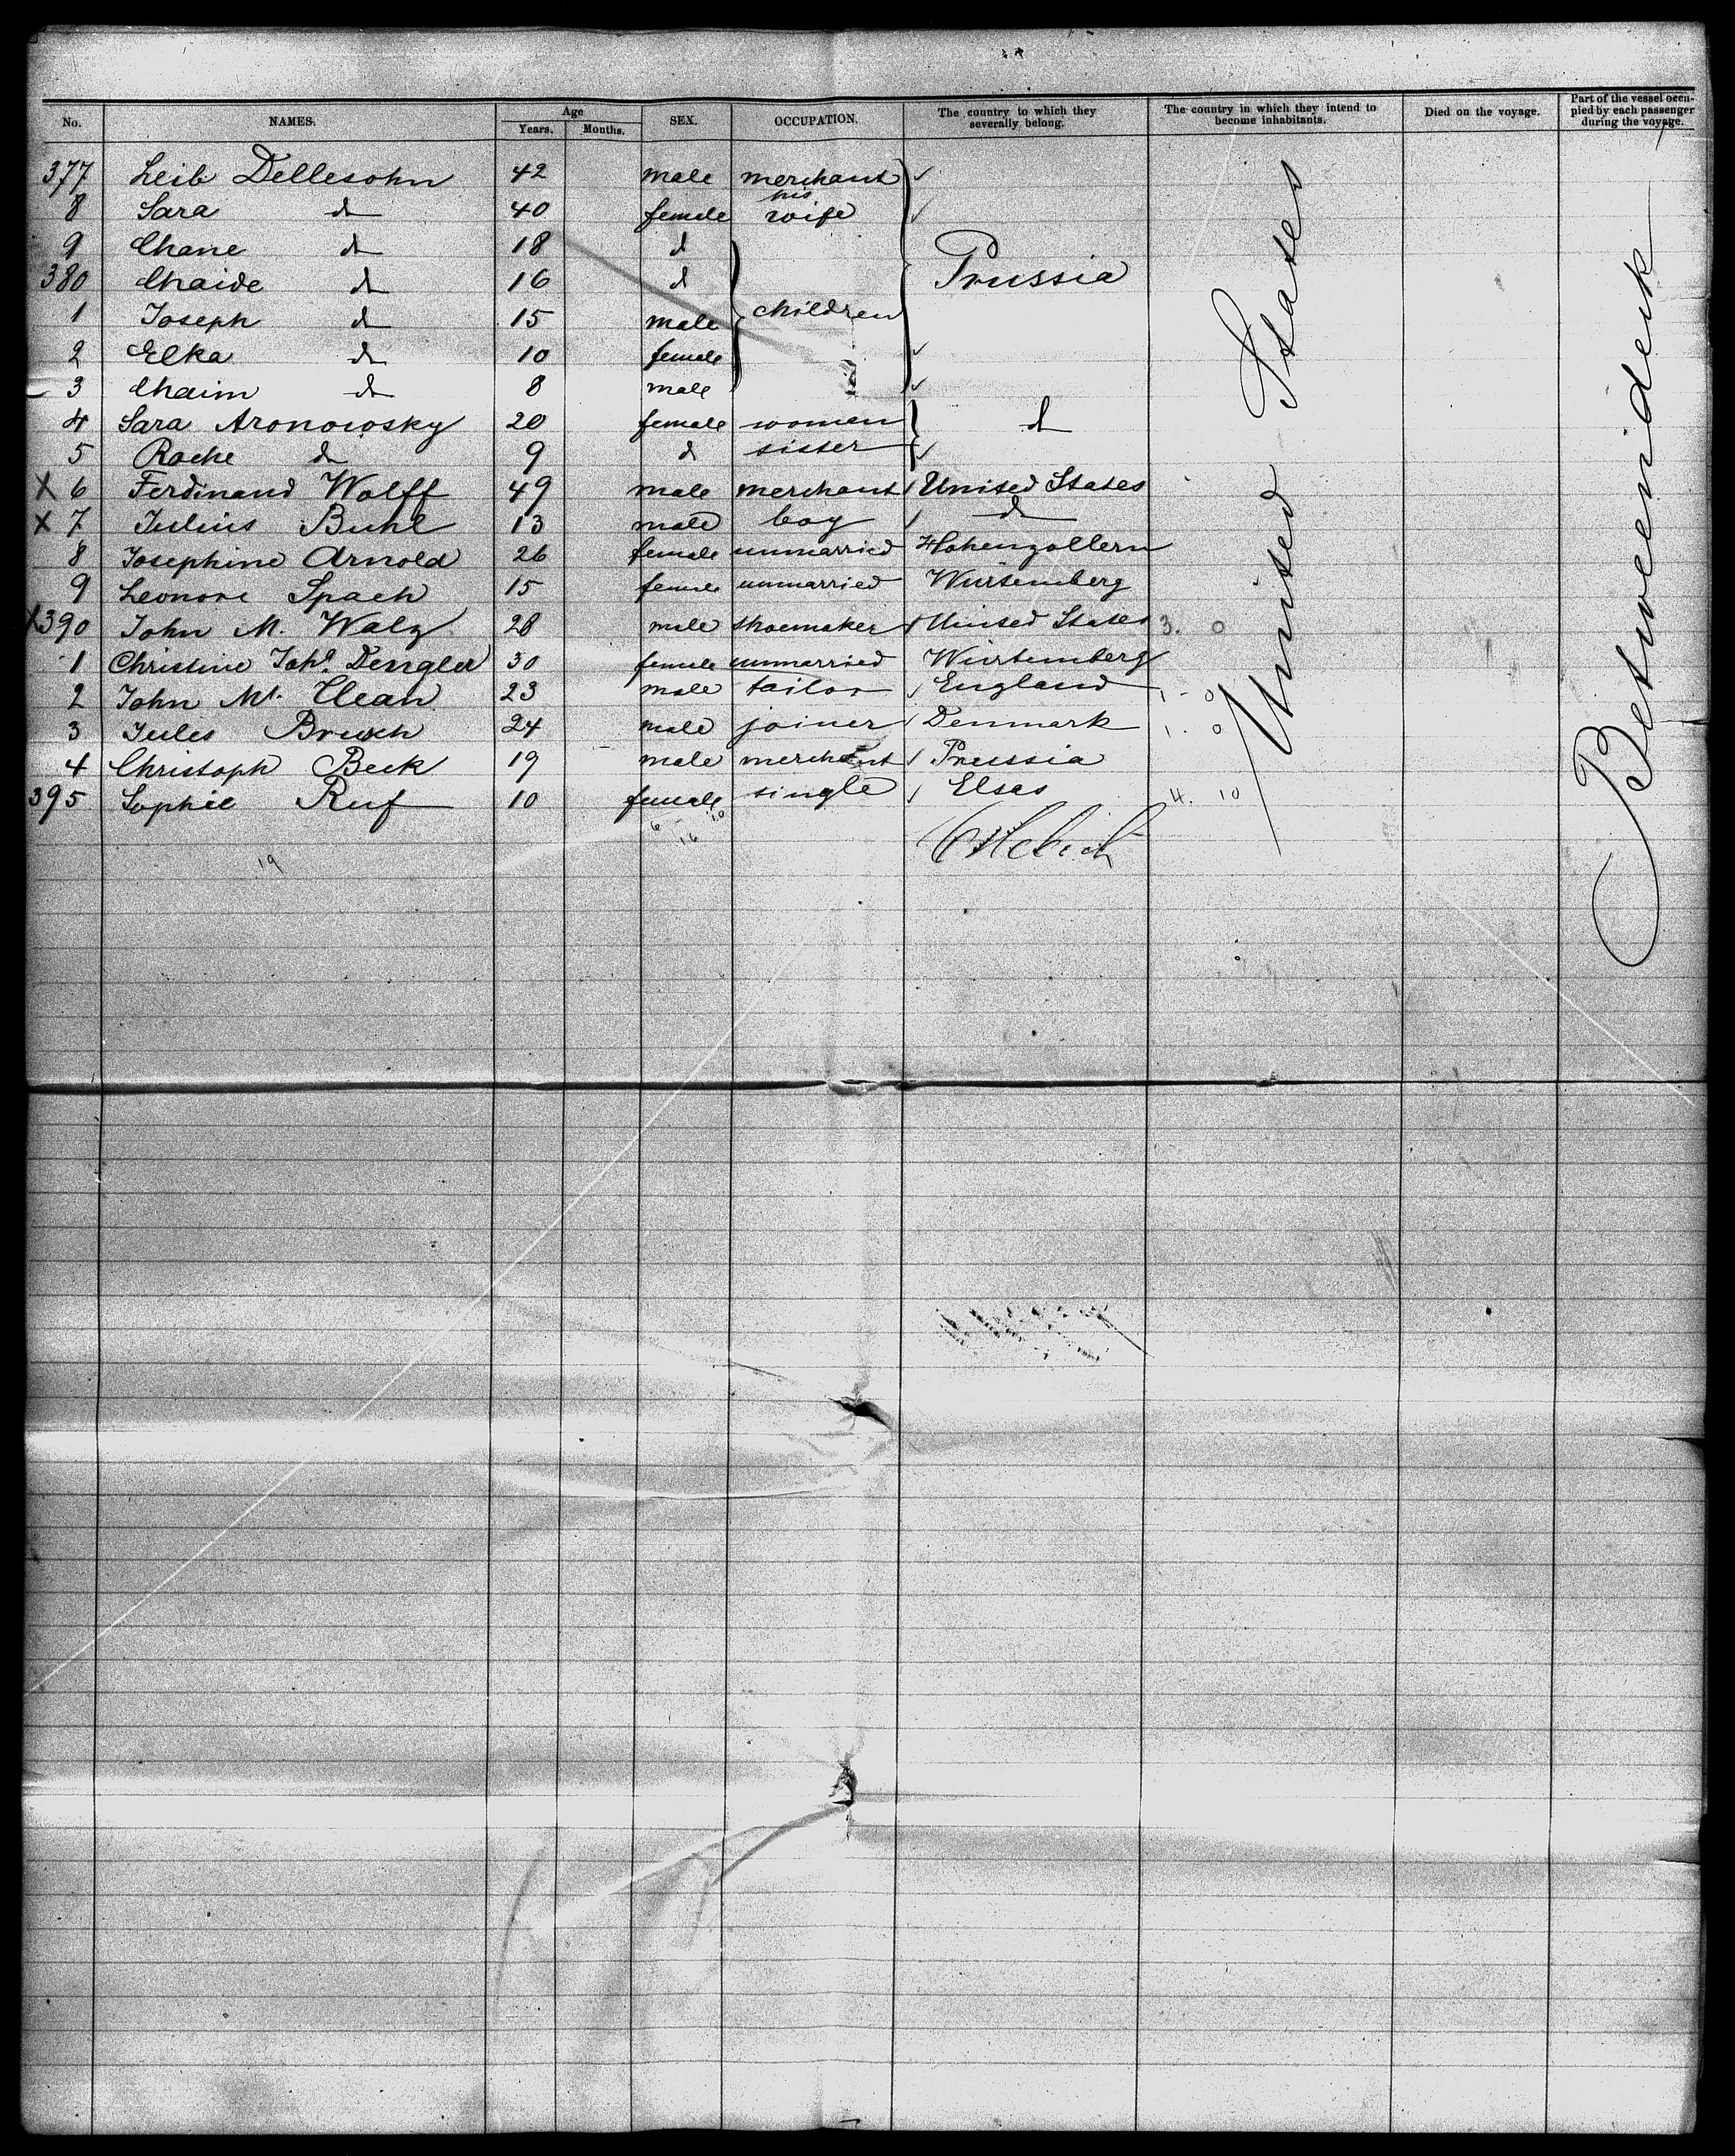 No. NAMES. Age Years. Months. SEX. OCCUPATION. The country to which they severally belong. The country in which they intend to become inhabitants. Died on the voyage. Part of the vessel occupied by each passenger during the voyage.
377 Leib Dellesohn 42 male merchant
8 Sara do 40 female his wife
9 Chane do 18 d
380 Chaide do 16 d Prussia
1 Joseph do 15 male children
2 Elka do 10 female
3 Chaim do 8 male
4 Sara Aronowsky 20 female women do
5 Roche do 9 d sister
X 6 Ferdinand Wolff 49 male merchant United States
X 7 Julius Buhl 13 male boy do
8 Josephine Arnold 26 female unmarried Hohenzollern
9 Leonore Spach 15 female unmarried Würtemberg
X390 John M. Walz 28 male shoemaker United States 3. 0
1 Christine Joh. Dengler 30 female unmarried Würtemberg
2 John Mc. Clean 23 male tailor England 1 - 0
3 Jules Bruch 24 male joiner Denmark 1. 0
4 Christoph Beck 19 male merchant Prussia
395 Sophie Ruf 10 female single Elsas 4. 10
United States
Betweendeck
6 16 10
19